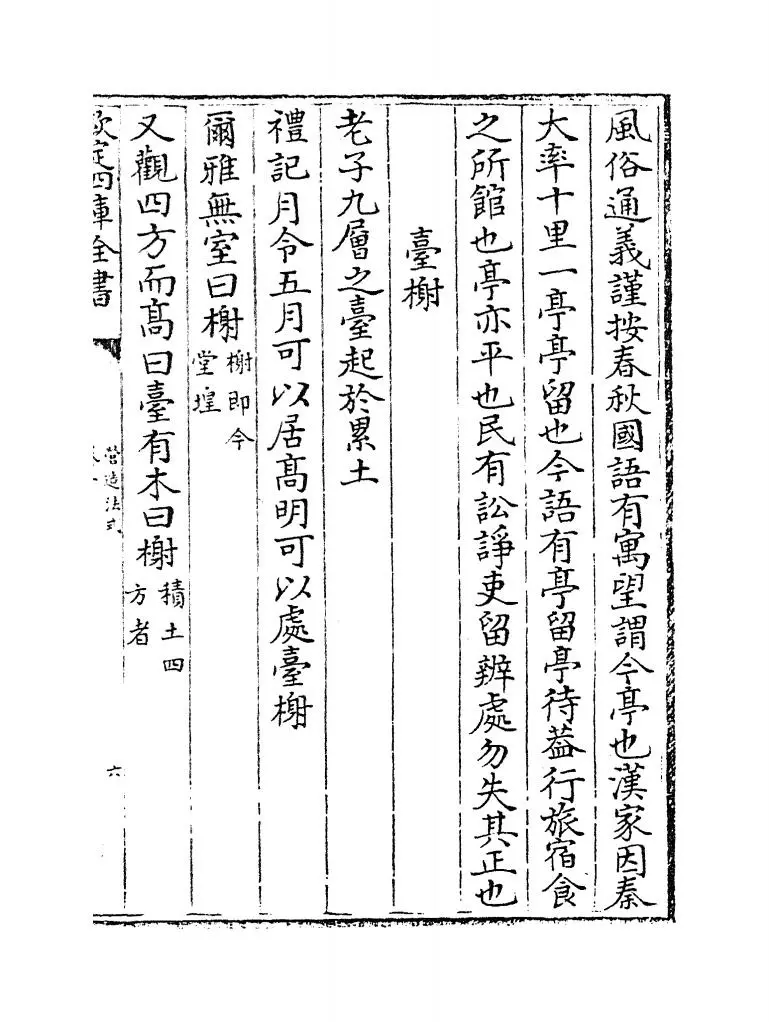 風俗通義謹按春秋國語有寓望謂今亭也漢家因秦
大率十里一亭亭留也今語有亭留亭待葢行旅宿食
之所館也亭亦平也民有訟諍吏留辨處勿失其正也
臺榭
老子九層之臺起於累土
禮記月令五月可以居髙明可以處臺榭
爾雅無室曰榭榭即今
堂堭
又觀四方而髙曰臺有木曰榭積土四
方者
欽定四庫全書
營造法式
六